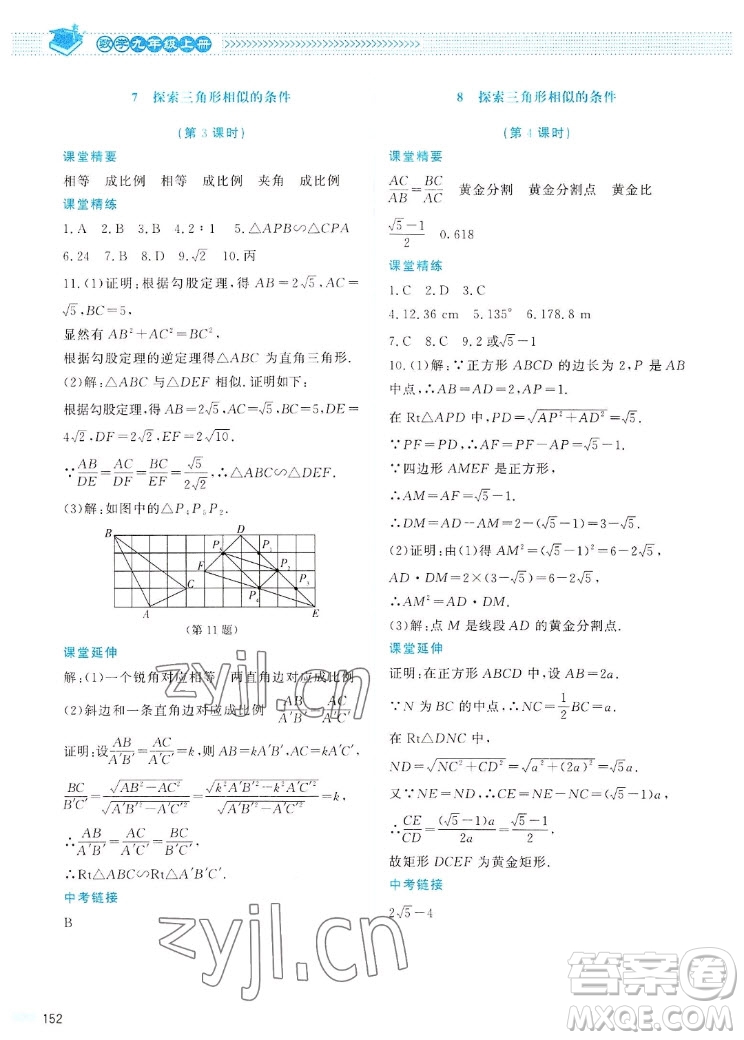 数学九年级上册
7 探索三角形相似的条件
(第3课时)
课堂精要
相等 成比例 相等 成比例 夹角 成比例
课堂精练
1.A 2.B 3.B 4.2∶1 5.△APB∽△CPA
6.24 7.B 8.D 9.√2 10.丙
11.(1)证明:根据勾股定理,得 AB=2√5,AC=
√5,BC=5,
显然有 AB²+AC²=BC²,
根据勾股定理的逆定理得△ABC 为直角三角形.
(2)解:△ABC 与△DEF 相似.证明如下:
根据勾股定理,得 AB=2√5,AC=√5,BC=5,DE=
4√2,DF=2√2,EF=2√10.
∵AB/DE=AC/DF=BC/EF=√5/2√2,∴△ABC∽△DEF.
(3)解:如图中的△P₄P₅P₂.
B D P₁
P₅
F P₂
C P₄ P₃
A E
(第11题)
课堂延伸
解:(1)一个锐角对应相等 两直角边对应成比例
(2)斜边和一条直角边对应成比例 AB/A′B′=AC/A′C′
证明:设AB/A′B′=AC/A′C′=k,则 AB=kA′B′,AC=kA′C′.
BC/B′C′=√(AB²−AC²)/√(A′B′²−A′C′²)=√(k²A′B′²−k²A′C′²)/√(A′B′²−A′C′²)=k.
∴AB/A′B′=AC/A′C′=BC/B′C′.
∴Rt△ABC∽Rt△A′B′C′.
中考链接
B
152
8 探索三角形相似的条件
(第4课时)
课堂精要
AC/AB=BC/AC 黄金分割 黄金分割点 黄金比
(√5−1)/2 0.618
课堂精练
1.C 2.D 3.C
4.12.36 cm 5.135° 6.178.8 m
7.C 8.C 9.2或√5−1
10.(1)解:∵正方形 ABCD 的边长为2,P 是 AB
中点,∴AB=AD=2,AP=1.
在 Rt△APD 中,PD=√(AP²+AD²)=√5.
∵PF=PD=√5,∴AF=√5−1.
∵四边形 AMEF 是正方形,
∴AM=AF=√5−1.
∴DM=AD−AM=2−(√5−1)=3−√5.
(2)证明:由(1)得 AM²=(√5−1)²=6−2√5,
AD·DM=2×(3−√5)=6−2√5.
∴AM²=AD·DM.
(3)解:点 M 是线段 AD 的黄金分割点.
课堂延伸
证明:在正方形 ABCD 中,设 AB=2a.
∵N 为 BC 的中点,∴NC=1/2BC=a.
在 Rt△DNC 中,
ND=√(NC²+CD²)=√(a²+(2a)²)=√5a.
又∵NE=ND,∴CE=NE−NC=(√5−1)a.
∴CE/CD=(√5−1)a/2a=(√5−1)/2.
故矩形 DCEF 为黄金矩形.
中考链接
2√5−4
zyjl.cn
zyjl.cn
答案圈
MXQE.COM